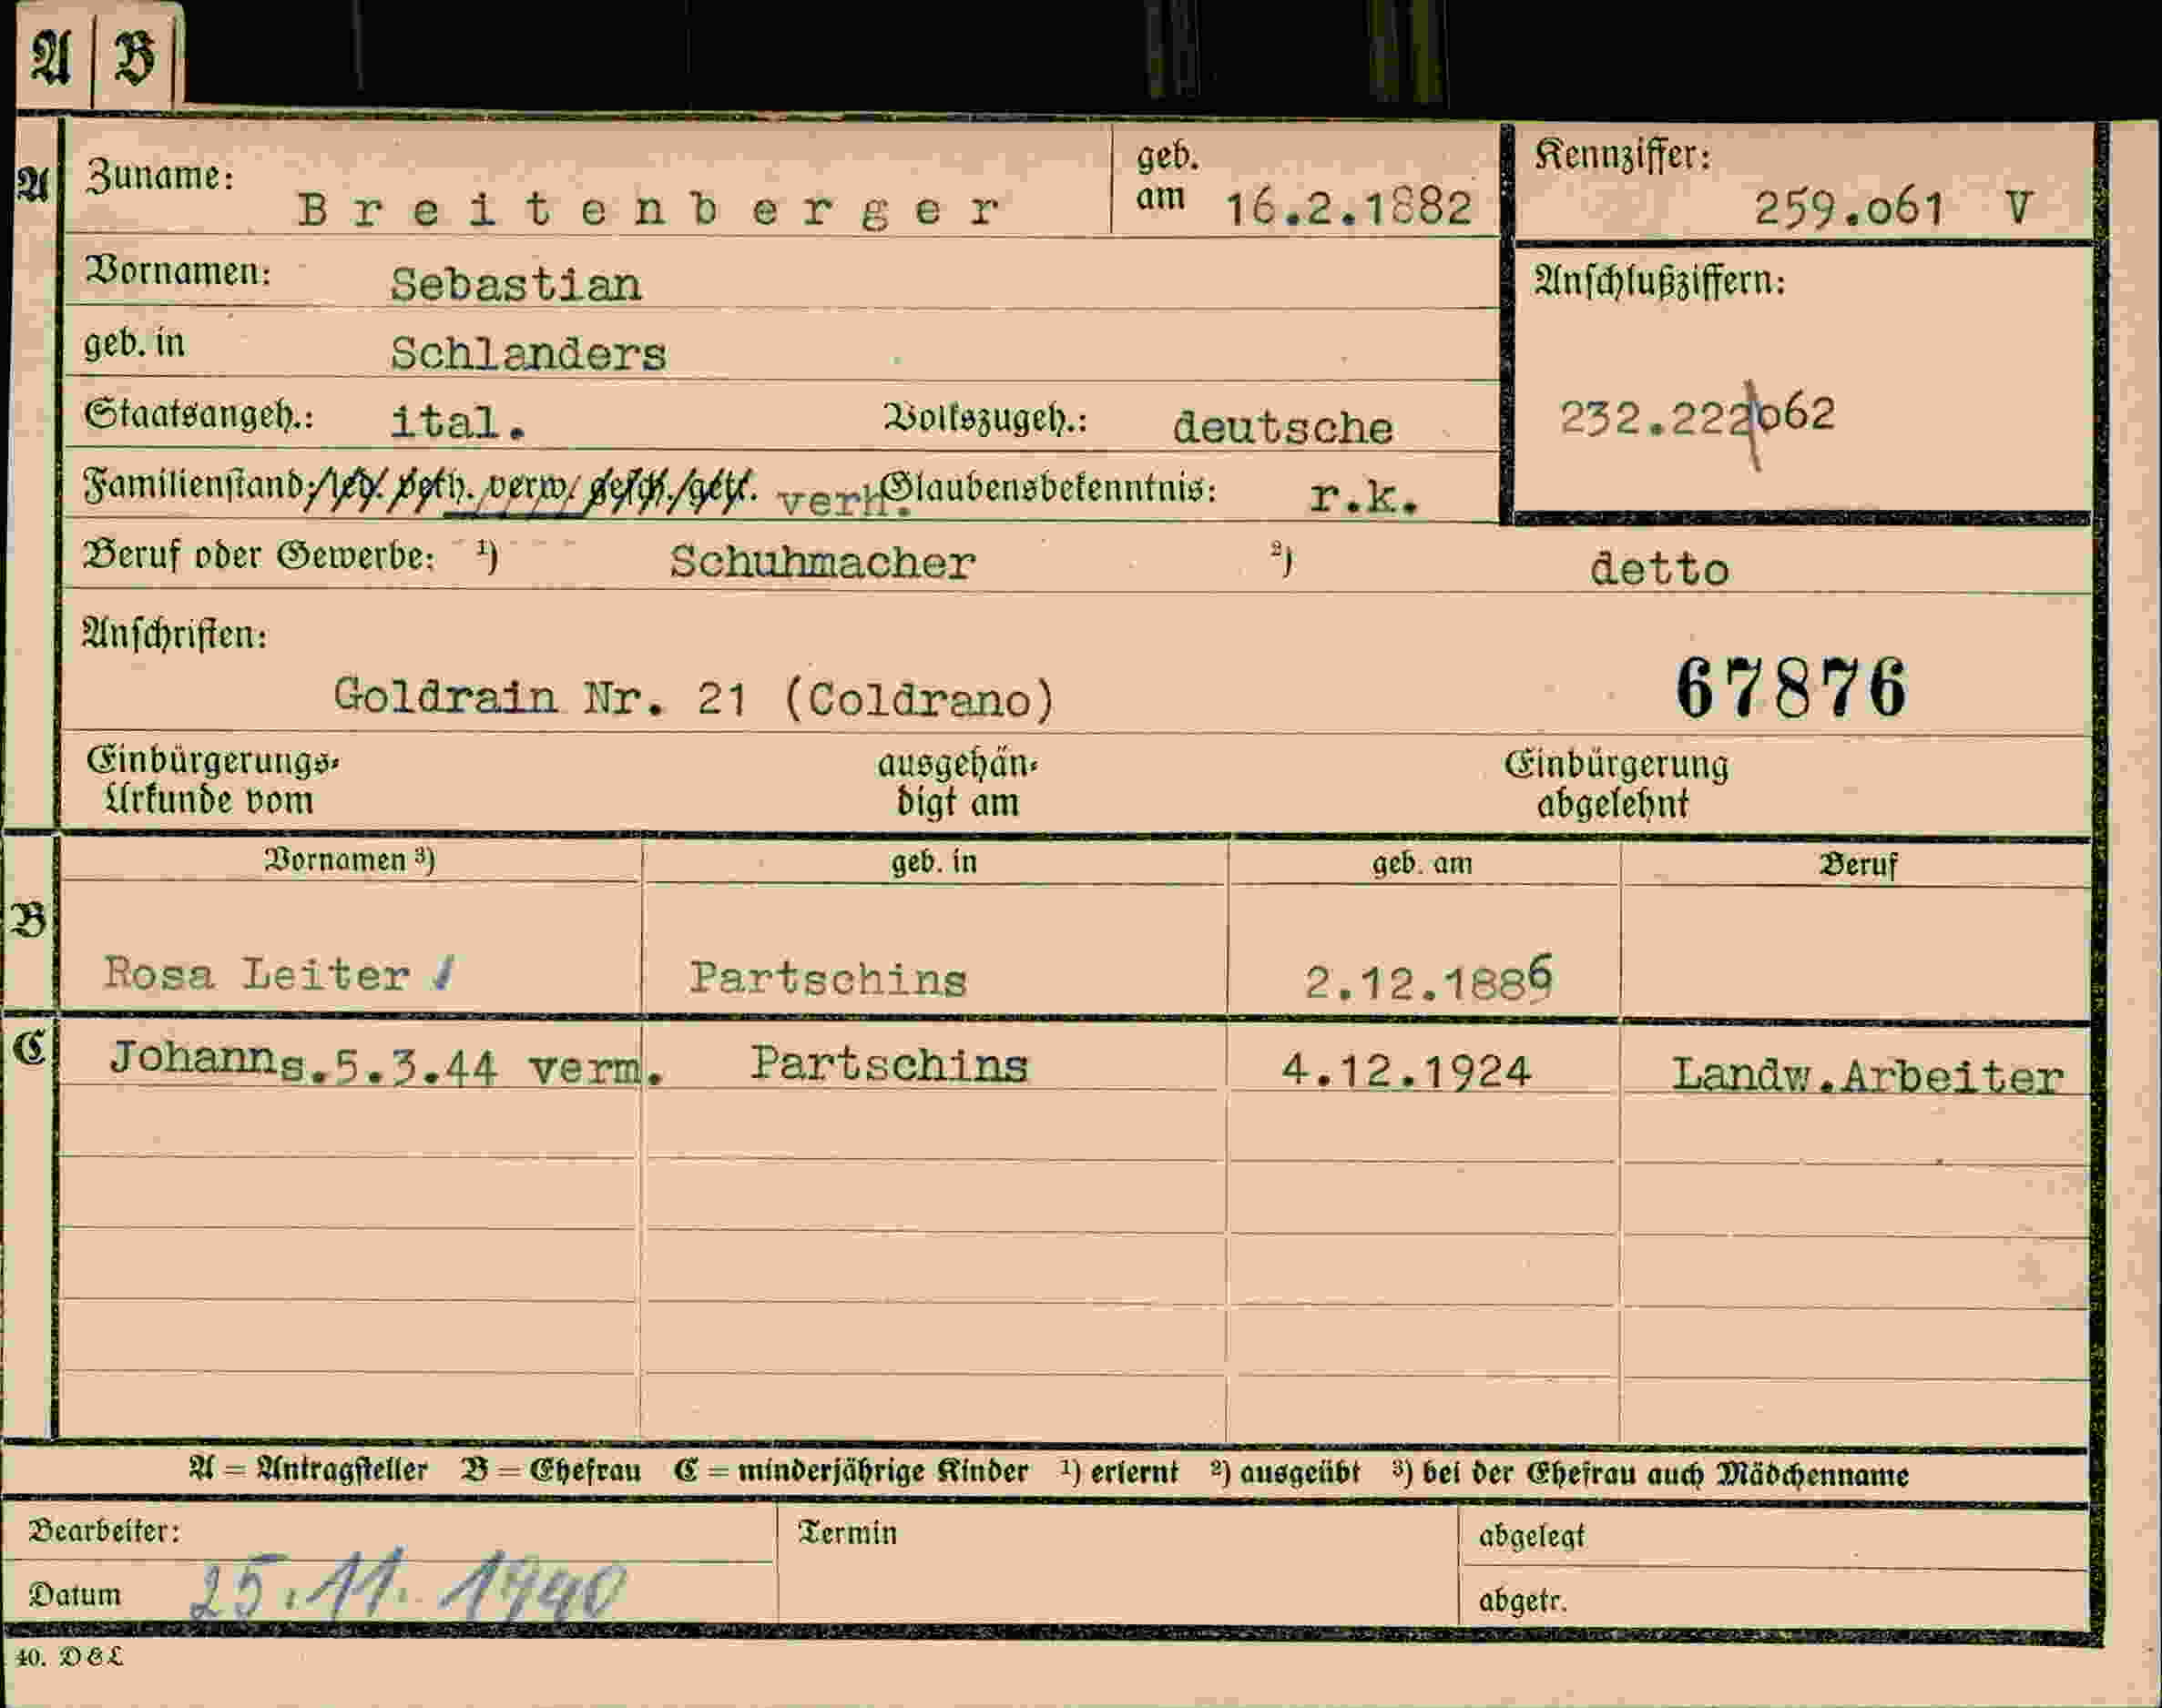 A B
A Zuname: Breitenberger geb. am 16.2.1882 Kennziffer: 259.o61 V
Vornamen: Sebastian Anschlußziffern:
geb. in Schlanders
Staatsangeh.: ital. Volkszugeh.: deutsche 232.222062
Familienstand: led. verh. verw. gesch. getr. verh. Glaubensbekenntnis: r.k.
Beruf oder Gewerbe: ¹) Schuhmacher ²) detto
Anschriften:
Goldrain Nr. 21 (Coldrano) 67876
Einbürgerungs- ausgehän- Einbürgerung
Urkunde vom digt am abgelehnt
Vornamen ³) geb. in geb. am Beruf
B
Rosa Leiter Partschins 2.12.1886
C Johann s.5.3.44 verm. Partschins 4.12.1924 Landw.Arbeiter
A = Antragsteller B = Ehefrau C = minderjährige Kinder ¹) erlernt ²) ausgeübt ³) bei der Ehefrau auch Mädchenname
Bearbeiter: Termin abgelegt
Datum 25.11.1940 abgetr.
40. D&L